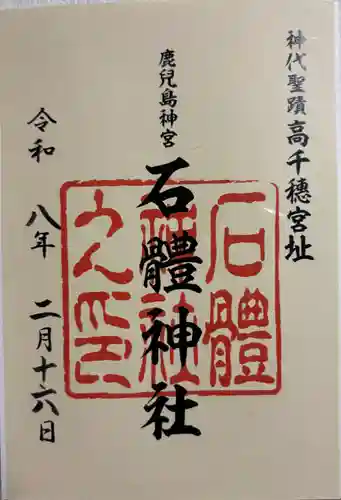 神代聖蹟高千穗宮址
鹿兒島神宮
石體神社
令和八年二月十六日
石體
神社